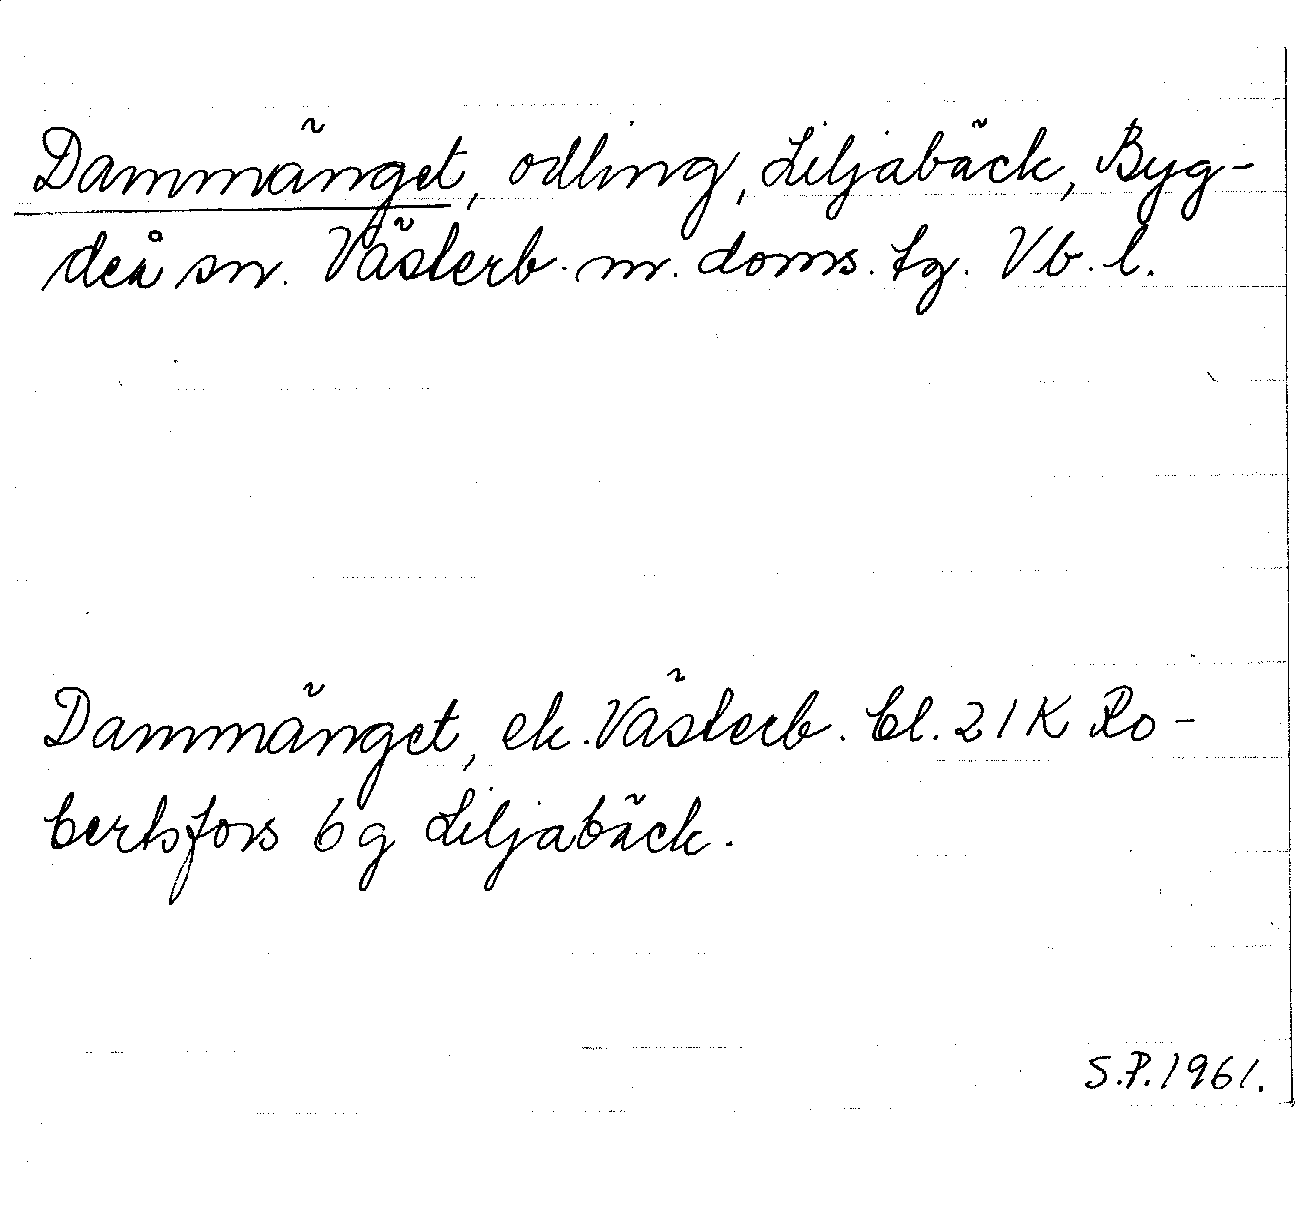 Dammänget, odling, Liljabäck, Byg-
deå sn. Västerb. m. doms. tg. Vb. l.
Dammänget, ek. Västerb. bl. 21K Ro-
bertsfors 6g Liljabäck.
S.P. 1961.